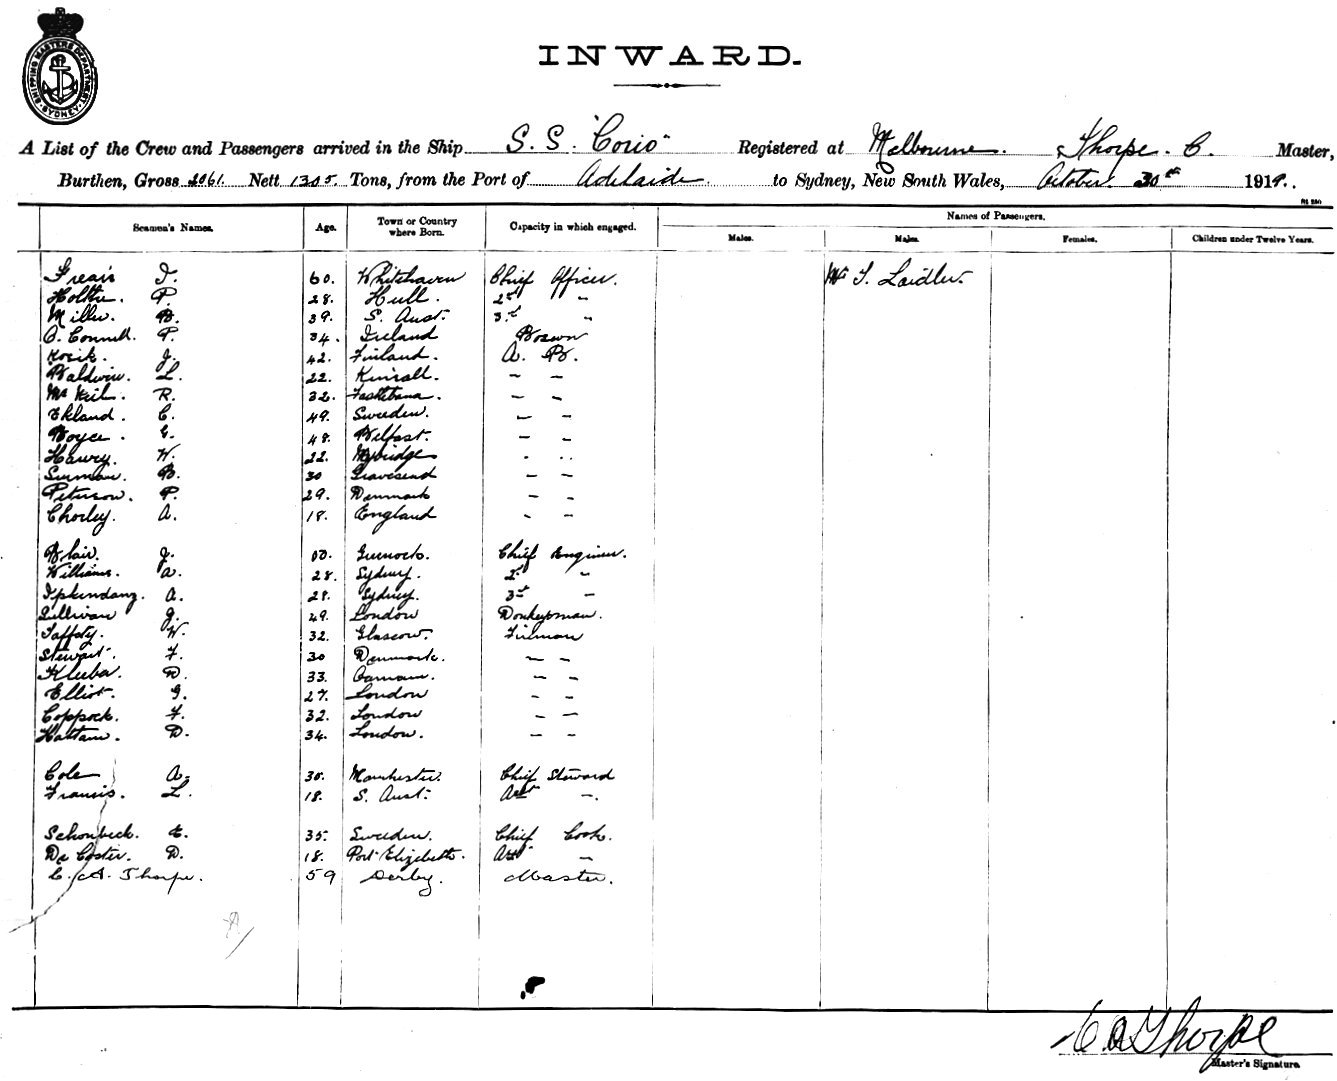 SHIPPING MASTERS DEPARTMENT SYDNEY
INWARD.
A List of the Crew and Passengers arrived in the Ship S. S. "Corio" Registered at Melbourne. Thorpe. C. Master,
Burthen, Gross 2061. Nett 1305. Tons, from the Port of Adelaide. to Sydney, New South Wales, October. 30th 1919.
Names of Passengers.
Seamen's Names. Age. Town or Country where Born. Capacity in which engaged. Males. Males. Females. Children under Twelve Years.
J. 60. Whitehaven Chief Officer. Mr T. Laidler.
P. 28. Hull. 2nd "
Miller. B. 39. S. Aust. 3rd "
O. Connell. P. 34. Ireland Boswn
J. 42. Finland. A. B.
Baldwin. L. 22. Kinsall. - -
Mc Neil. R. 32. - -
Ekland. C. 49. Sweden. - -
Boyce. G. 48. Belfast. - -
W. 22. - -
Surman. B. 30 Gravesend - -
Peterson. P. 29. Denmark - -
Chorley. A. 18. England - -
Blair. J. Greenock. Chief Engineer.
Williams. A. 28. Sydney. 2nd "
A. 28. Sydney. 3rd -
Sullivan J. 49. London Donkeyman.
Taffety. W. 32. Glascow. Fireman
Stewart. F. 30 Denmark. - -
D. 33. Oamaru. - -
Elliot. G. 27. London - -
Coppock. F. 32. London - -
Hattam. D. 34. London. - -
Cole A. 30. Manchester. Chief Steward
Francis. L. 18. S. Aust. Asst -.
Schonbeck. E. 35. Sweden. Chief Cook.
De Coster. D. 18. Port Elizabeth. Asst -
C. A. Thorpe. 59 Derby. Master.
C A Thorpe
Master's Signature.